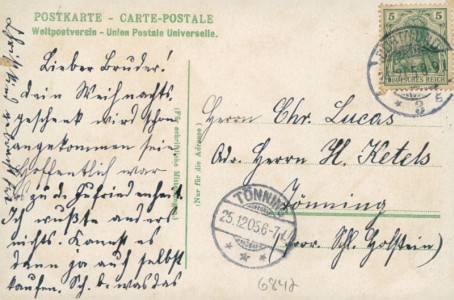 POSTKARTE - CARTE-POSTALE
Weltpostverein - Union Postale Universelle.
5 5
DEUTSCHES REICH
Lieber Bruder!
Dein Weihnachts
geschenk wird schon
angekommen sein
Hoffentlich war
es zu d. Zufriedenheit.
Ich wußte anders
nichts. Kannst es
dann ja auch selbst
kaufen. Sch. b. was das
(Nur für die Adresse)
Herrn Chr. Lucas
Adr. Herrn H. Ketels
Tönning
(Prov. Schl. Holstein)
TÖNNING
25.12.05.6-7
6842